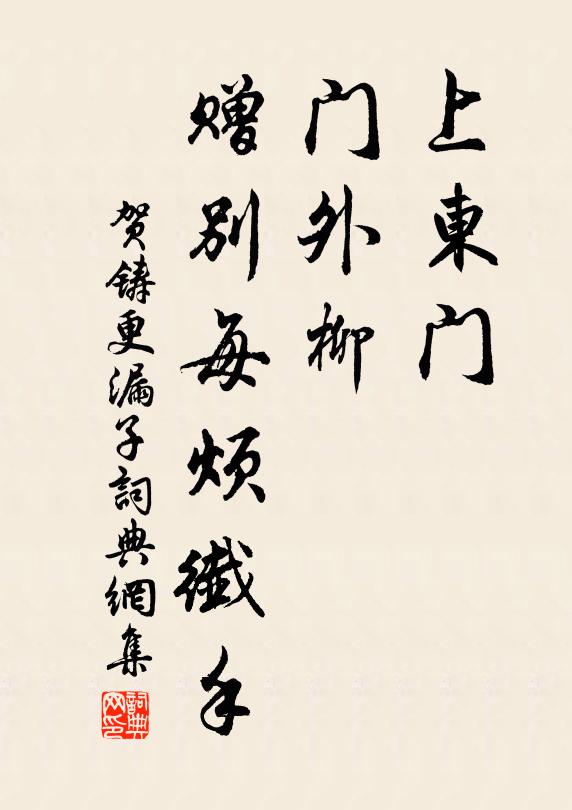 上東門
门外柳
赠别每烦纖手
贺鑄更漏子詞典網集
詞典网印